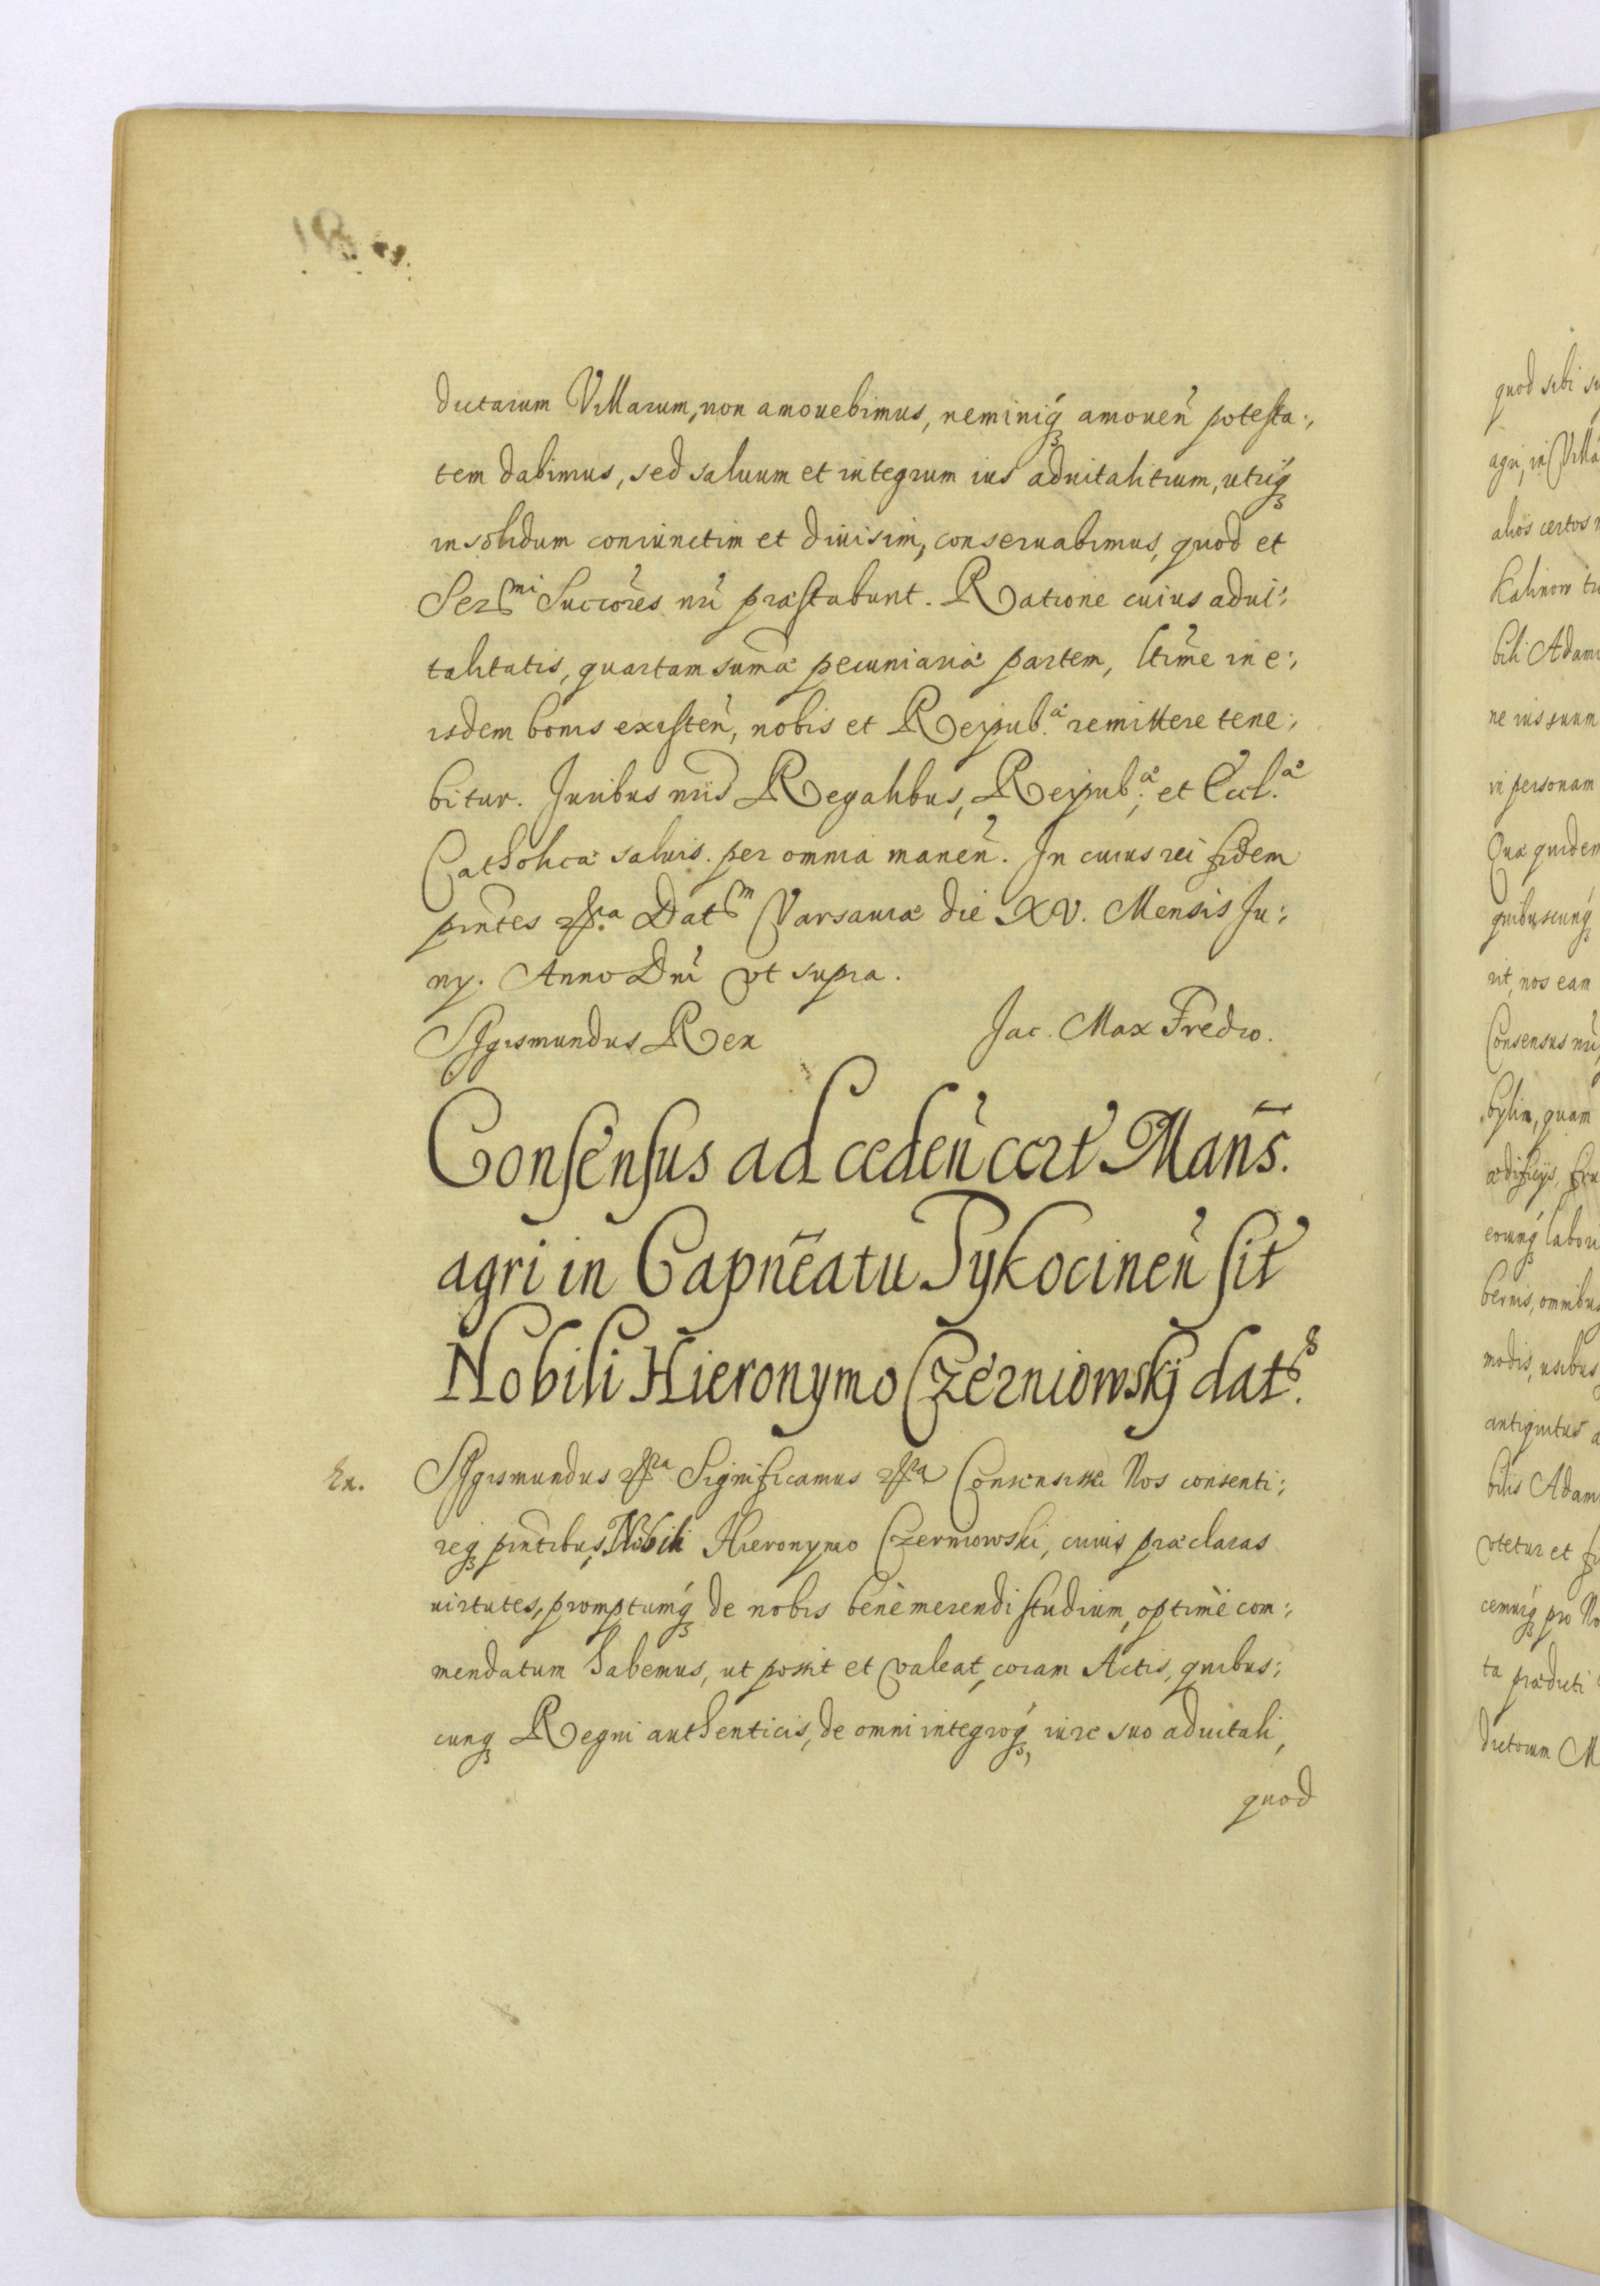 dictarum Villarum, non amouebimus, neminiq́ȝ amoueñ potesta:,
tem dabimus, sed saluum et integrum ius aduitalitium, utriq́ȝ
in solidum coniunctim et diuisim, conseruabimus, quod et
Serᵐⁱ Succores nri præstabunt. Ratione cuius adui:,
talitatis, quartam sumæ pecuniariæ partem, ltime in e:,
isdem bonis existeñ, nobis et Reipub.æ remittere tene:,
bitur. Juribus nris Regalibus, Reipub.æ, et Eccl.æ
Catholicæ saluis per omnia maneñ. In cuius rei fidem
pntes &.ra Datm Varsauiæ die XV. Mensis Ju:,
ny. Anno Dni vt supra.
Sigismundus Rex
Jac. Max Fredro.
Consensus ad cedeñ cert Mans.
agri in Capneatu Tykocineñ sit
Nobili Hieronymo Czerniowskÿ dats.
Ex.
Sigismundus &ra Significamus &ra Consensisse Nos consenti:,
reqȝ pntibus, Nobili Hieronymo Czerniowski, cuius præclaras
uirtutes, promptumq́ȝ de nobis benè merendi studium, optimè com:,
mendatum habemus, ut possit et valeat, coram Actis, quibus:,
cunqȝ Regni authenticis, de omni integroq́ȝ, iure suo aduitali,
quod
quod sibi
agri, in Villa
alios certos
Kalinow
bili Adam
ne ius suum
in personam
Quæ quidem
quibuscunq́ȝ
rit, nos eam
Consensus nri
bylin, quam
ædificijs,
eorunq́ȝ
bernis, omnibus
modis, usibus
antiquitus a
bilis Adam
vtetur et
cemusq́ȝ pro No
ta prædicti
dictorum M